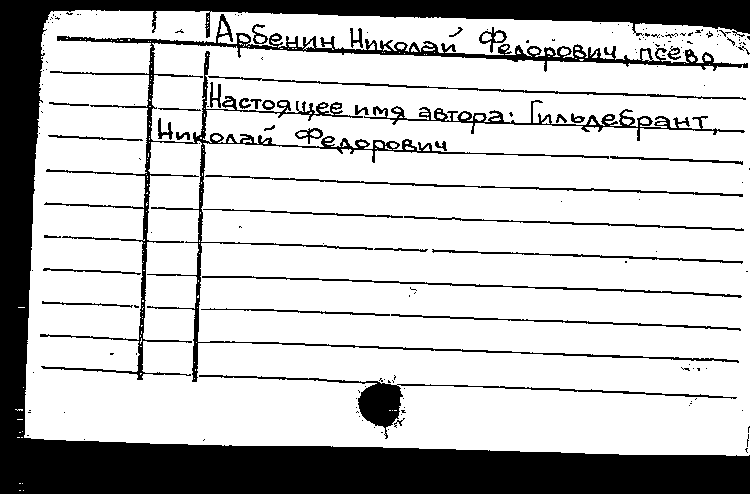 Арбенин, Николай Федорович, псевд.
Настоящее имя автора: Гильдебрант,
Николай Федорович